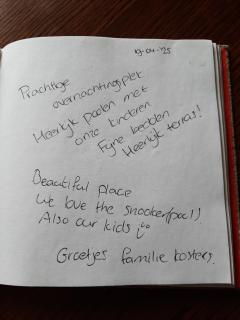 19-04-'25
Prachtige
overnachtingsplek
Heerlijk poolen met
onze kinderen
Fijne bedden
Heerlijk terras!
Beautiful place
We love the snooker(pool)
Also our kids
Groetjes familie Kosters.